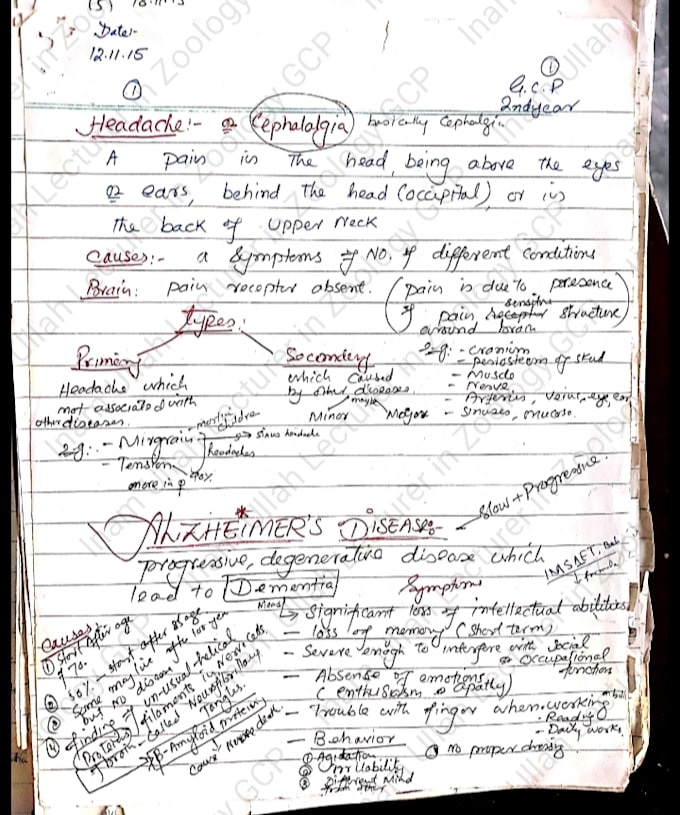 (5) 18.11.15
Date:-
12.11.15
①
①
G.C.P
2ndyear
Headache:- or Cephalalgia basically Cephalgi..
A pain in The head, being above the eyes
or ears, behind The head (occipital) or in
the back of Upper Neck
Causes:- a Symptoms of NO. of different conditions
Brain: pain receptor absent. (pain is due to presence
of pain sensitive structure
around brain
types:
e.g:- Cranium
- periosteum of skul
- Muscle
- Nerve
- Arteries, Veins, eye, ear
- Sinuses, mucosa.
Primary
Headache which
not associated with
other diseases.
e.g:- - Mirgrain
- Tension
more in ♀ 90%
headaches
sinus headache
Secondary
which caused
by other diseases.
maybe
Minor Major
*
ALZHEIMER'S DISEASE:- Slow + Progressive.
progressive, degenerative disease which
lead to Dementia
Means
Symptoms
IMSAFT. Beh
formula
Significant loss of intellectual abilities
- loss of memory (short term)
- Severe enough to interfere with Social
or Occupational
function
- Absense of emotions
(enthusiasm or apathy)
- Trouble with finger when working
- Reading
- Daily works.
- Behavior
① Agitation
② Irritability
③ Different Mind
④ no proper dressing
Causes:-
① Start After age
of 70.
② 50% - start after 85 age
③ Some may live after 100 year
but no disease
④ finding of un-usual helical
(Proteins) filaments in nerve cells
of brain - called Neurofibrillary
Tangles.
β-Amyloid protein
cause Nerve death.
Inam Ullah Lecturer in Zoology GCP